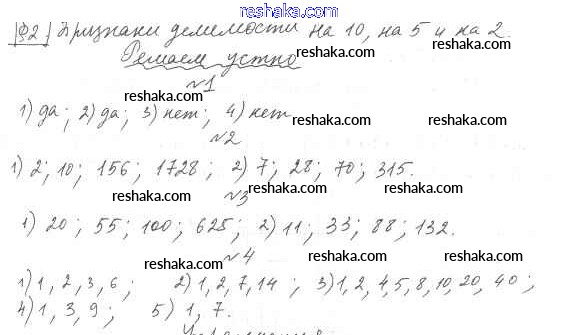 reshaka.com
§2 Признаки делимости на 10, на 5 и на 2.
reshaka.com
Решаем устно
reshaka.com
№1
reshaka.com
1) да; 2) да; 3) нет; 4) нет
reshaka.com
№2
reshaka.com
1) 2; 10; 156; 1728; 2) 7; 28; 70; 315.
reshaka.com
№3
reshaka.com
1) 20; 55; 100; 625; 2) 11; 33; 88; 132.
reshaka.com
№4
reshaka.com
1) 1, 2, 3, 6; 2) 1, 2, 7, 14; 3) 1, 2, 4, 5, 8, 10, 20, 40;
4) 1, 3, 9; 5) 1, 7.
reshaka.com